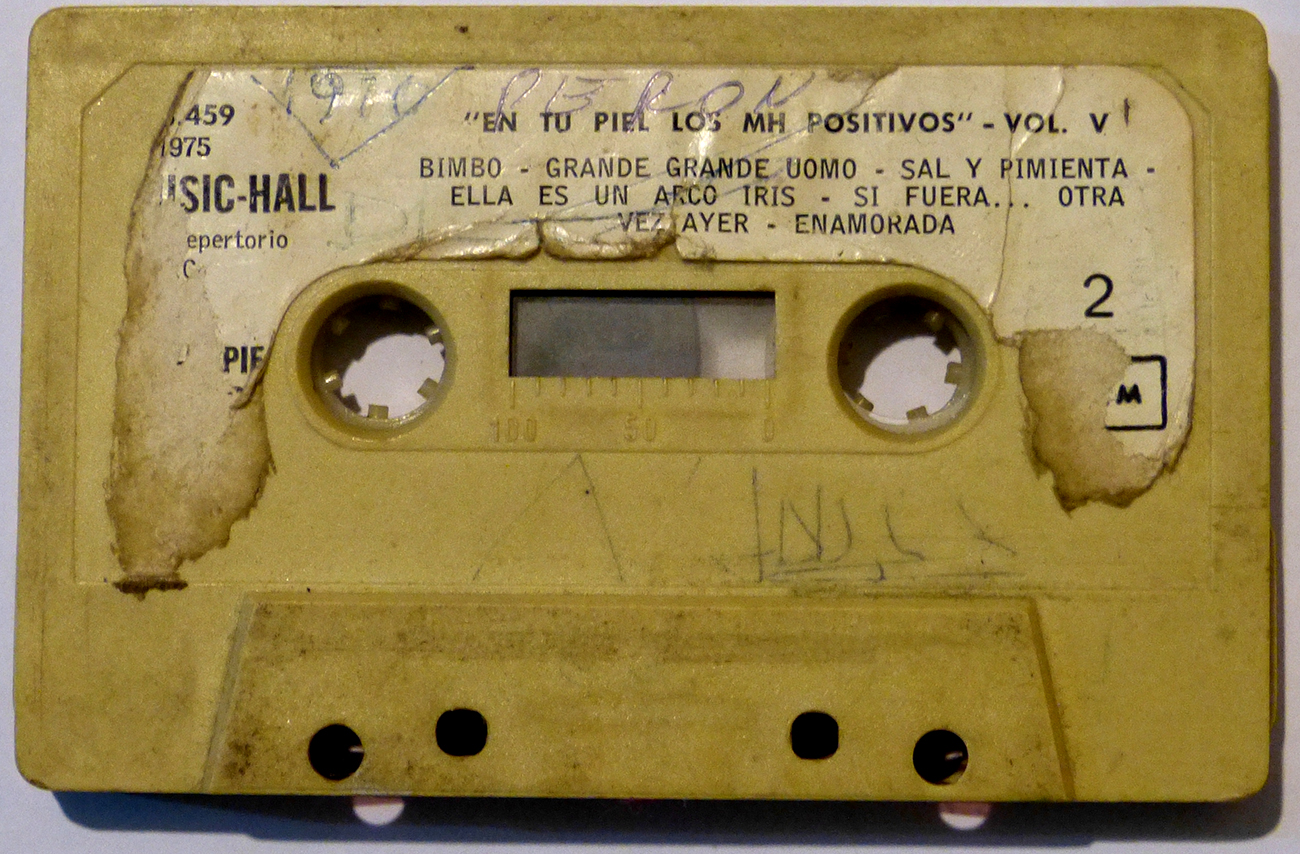 1976 PERON
.459
1975
"EN TU PIEL LOS MH POSITIVOS" - VOL. V
USIC-HALL
BIMBO - GRANDE GRANDE UOMO - SAL Y PIMIENTA -
ELLA ES UN ARCO IRIS - SI FUERA... OTRA
VEZ AYER - ENAMORADA
epertorio
C
2
PIE
M
100 50 0